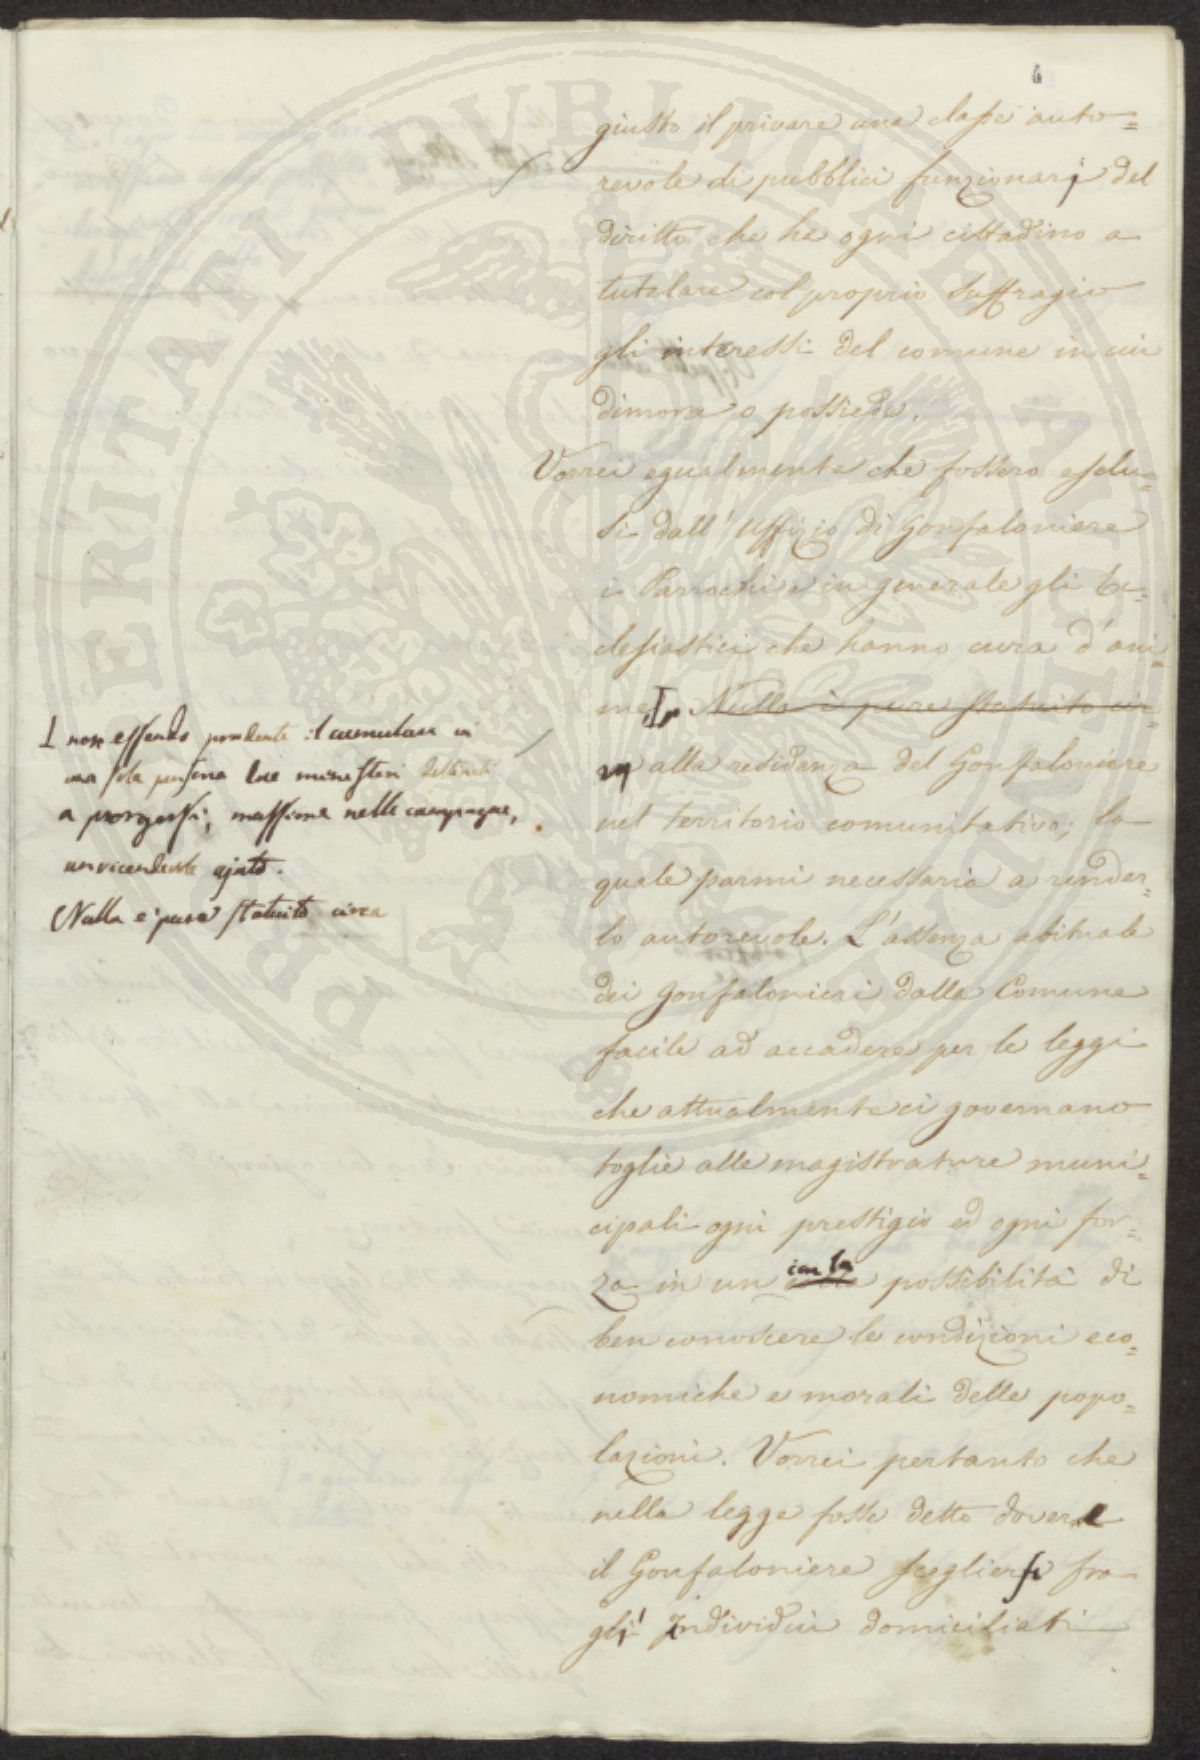 6
giusto il privare una classe auto=
revole di pubblici funzionarj del
diritto che ha ogni cittadino a
tutelare col proprio suffragio
gli interessi del comune in cui
dimora o possiede.
Vorrei egualmente che fossero esclu=
si dall'Uffizio di Gonfaloniere
i Parrochi e in generale gli Ec=
clesiastici che hanno cura d'ani=
me, Nulla è pure statuito cir=
alla residenza del Gonfaloniere
nel territorio comunitativo; la
quale parmi necessaria a render=
lo autorevole. L'assenza abituale
dei Gonfalonieri dalla Comune
facile ad accadere per le leggi
che attualmente ci governano
toglie alle magistrature muni=
cipali ogni prestigio ed ogni for=
za in un con la possibilità di
ben conoscere le condizioni eco=
nomiche e morali delle popo=
lazioni. Vorrei pertanto che
nella legge fosse detto dovere
il Gonfaloniere scegliersi fra
gl' Individui domiciliati
non essendo prudente il cumulare in
una sola persona due ministeri destinati
a porgersi, massime nelle campagne,
un vicendevole ajuto.
Nulla e' pure statuito circa
PERITATI PVBLICAE